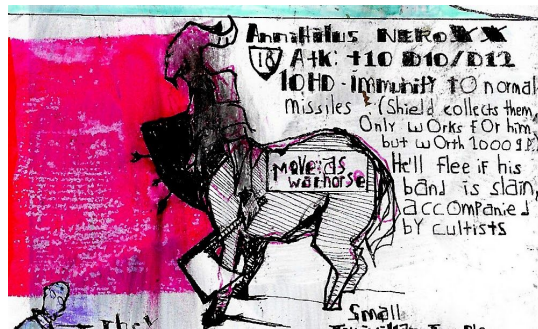 Annihilus NERO XX
18 Atk: +10 D10/D12
10HD - immunity to normal
missiles (Shield collects them,
Only wOrks fOr him,
but wOrth 1000 g.p.)
Move: as
warhorse
He'll Flee if his
band is slain,
accOmpanied
by cultists
Small
they